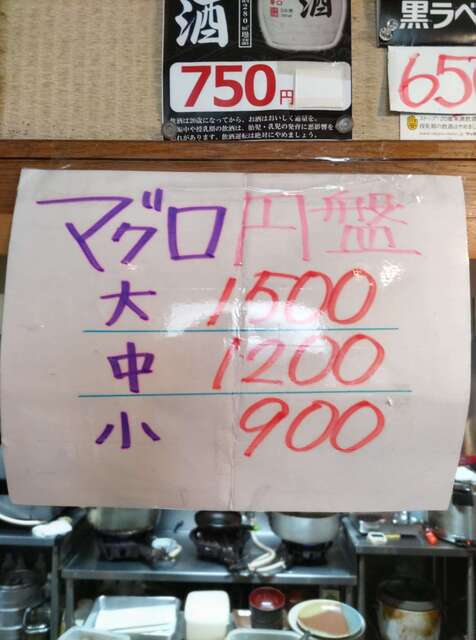 酒
280ml瓶詰
酒
750円
飲酒は20歳になってから。お酒はおいしく適量を。
妊娠中や授乳期の飲酒は、胎児・乳児の発育に悪影響を
飲酒運転は絶対にやめましょう。
黒ラベ
650
マグロ円盤
大 1500
中 1200
小 900